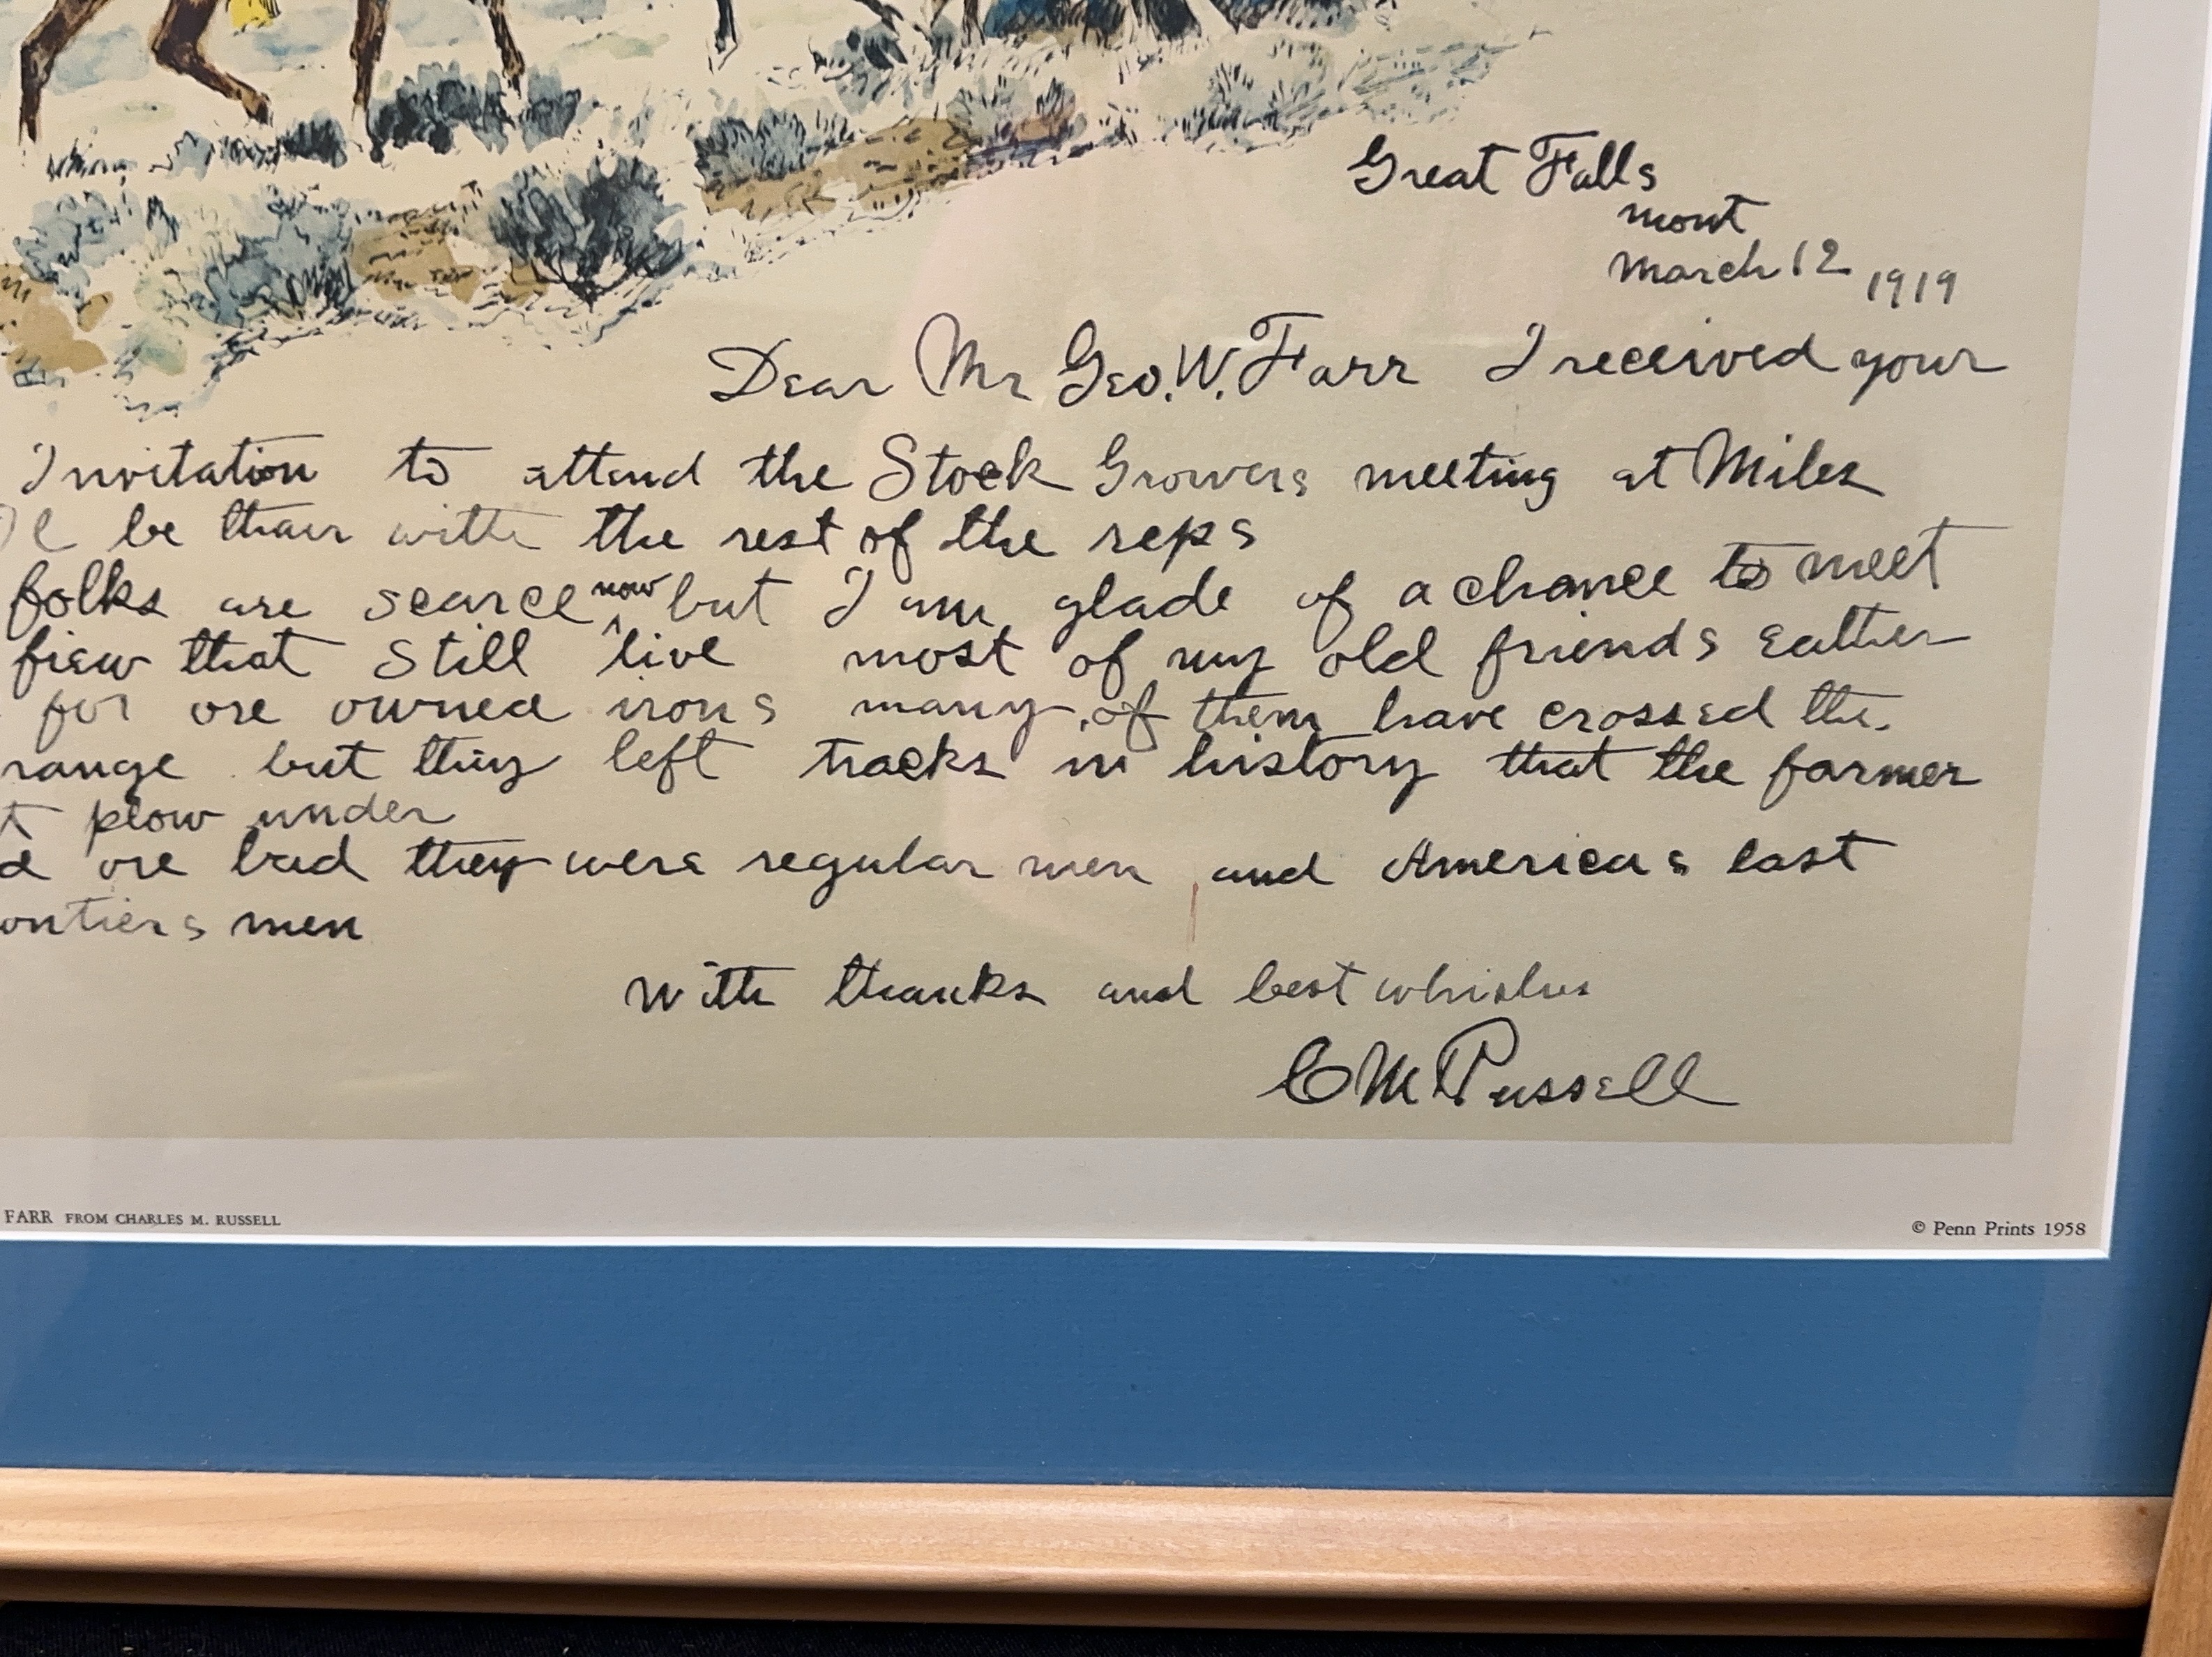 Great Falls
mont
March 12 1919
Dear Mr Geo. W. Farr I received your
Invitation to attend the Stock Growers meeting at Miles
l be thair with the rest of the reps
folks are scarce now but I am glade of a chance to meet
fiew that still live most of my old friends eather
for ore owned irons many of them have crossed the
range but they left tracks in history that the farmer
t plow under
d ore bad they were regular men and Americas last
ontiers men
With thanks and best whishes
CM Russell
FARR FROM CHARLES M. RUSSELL
© Penn Prints 1958